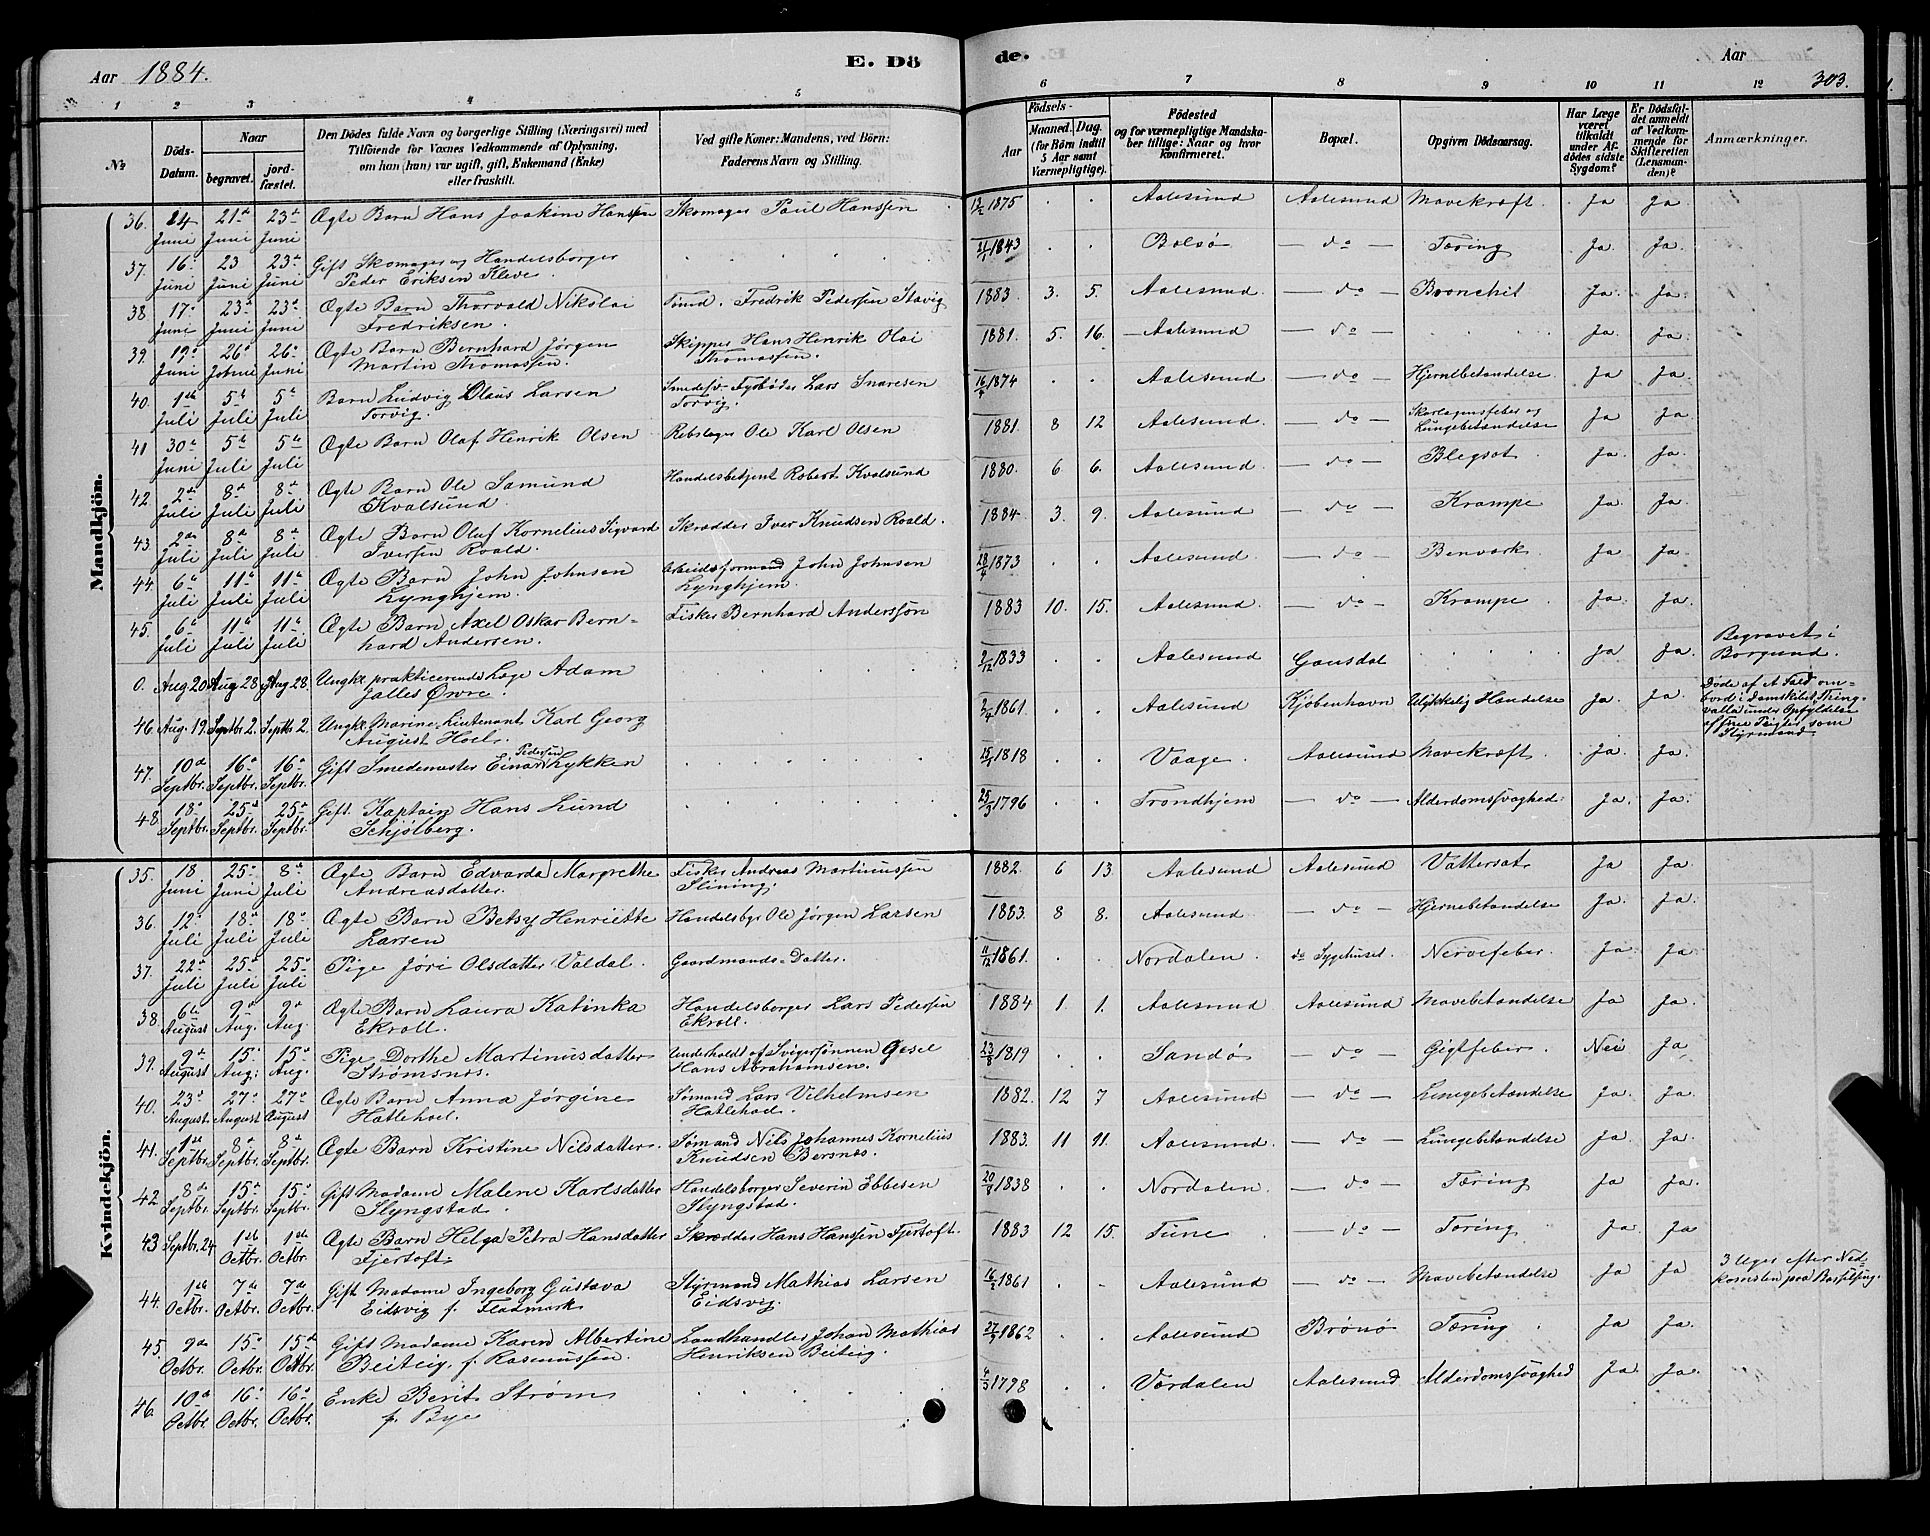 Aar 1884.
E. Dö
de.
Aar
303.
1 2 3 4 5 6 7 8 9 10 11 12
№
Döds-Datum.
Naar
begravet.
jord-fæstet.
Den Dödes fulde Navn og borgerlige Stilling (Næringsvei) med
Tilföiende for Voxnes Vedkommende af Oplysning,
om han (hun) var ugift, gift, Enkemand (Enke)
eller fraskilt.
Ved gifte Koner: Mandens, ved Börn:
Faderens Navn og Stilling.
Födsels-
Aar
Maaned. Dag.
(for Börn indtil
5 Aar samt
Værnepligtige).
Födested
og for værnepligtige Mandska-
ber tillige: Naar og hvor
konfirmeret.
Bopæl.
Opgiven Dödsaarsag.
Har Læge
været
tilkaldt
under Af-
dödes sidste
Sygdom?
Er Dödsfal-
det anmeldt
af Vedkom-
mende for
Skifteretten
(Lensman-
den)?
Anmærkninger.
Mandkjön.
36. 14 Juni 21de Juni 23de Juni Ægte Barn Hans Joakim Hanssen Skomager Paul Hanssen 1875 Aalesund Aalesund Mavekræft. Ja Ja
37. 16 Juni 23 Juni 23de Juni Gift Skomager og Handelsborger
Peder Eriksen Kleve. 21/1 1843 Bolsø — do — Tæring Ja Ja.
38 17 Juni 23 Juni 23 Juni Ægte Barn Thorvald Nikolai
Fredriksen. Tømd. Fredrik Pedersen Stavig 1883 3. 5. Aalesund — do — Bronchit Ja. Ja.
39. 19 Juni 26 Juni 26 Juni Ægte Barn Bernhard Jørgen
Martin Thomassen. Skipper Hans Henrik Olai
Thomassen. 1881. 5. 16. Aalesund — do — Ja Ja.
40. 1ste Juli 5te Juli 5te Juli Barn Ludvig Olaus Larsen
Torvig. Lars Snaresen
Torvig. 16/4 1874 Aalesund — do — Hjernebetændelse. Ja Ja.
41 30 Juni 5te Juli 5te Juli Ægte Barn Olaf Henrik Olsen Rebslager Ole Karl Olsen 1881. 8 12 Aalesund. — do — Skarlagensfeber og
Lungebetændelse Ja Ja.
42. 2de Juli 8de Juli 8de Juli Ægte Barn Ole Samund
Kvalsund Handelsbetjent Robert Kvalsund 1880. 6 6. Aalesund. — do — Blegsot. Ja. Ja.
43. 2de Juli 8de Juli 8de Juli Ægte Barn Oluf Kornelius Sigvard
Iversen Roald. Skrædder Iver Knudsen Roald. 1884 3. 9. Aalesund — do — Krampe Ja. Ja
44. 6te Juli 11te Juli 11te Juli Ægte Barn John Johnsen
Lynghjem. Arbeidsformand John Johnsen
Lynghjem. 1873 Aalesund — do — Benværk. Ja Ja.
45. 6te Juli 11te Juli 11te Juli Ægte Barn Axel Oskar Bern=
hard Andersen. Fisker Bernhard Anderssøn 1883 10. 15. Aalesund. — do — Krampe Ja. Ja.
0. Aug 20 Aug 28 Aug 28. Ungkr. praktiserende Læge Adam
Jalles Øvre. 2/12 1833 Aalesund Gausdal Ja Ja. Begravet i
Borgund.
46. Aug. 19. Septbr. 2. Septbr 2. Ungkr. Marine-Lieutenant Karl Georg
August Hoel. 1861. Aalesund Kjøbenhavn Ulykkelig Hændelse Ja. Ja. Døde af et Fald om=
bord i Damskibet Thing-
valla under Opfyldelse
af sine Pligter som
Styrmand
47. 10de Septbr. 16de Septbr. 16de Septbr. Gift Smedemester Einar Pedersen Lykken 15/1 1818 Vaage Aalesund Mavekræft. Ja Ja.
48. 18 Septbr. 25 Septbr. 25 Septbr. Gift Kaptain Hans Lund
Schjølberg. 25/3 1796 Trondhjem — do — Alderdomssvaghed. Ja. Ja.
Kvindekjön.
35. 18 Juni 25 Juni 8de Juli Ægte Barn Edvarda Margrethe
Andreasdatter. Fisker Andreas Martinussen
Slining. 1882. 6 13. Aalesund Aalesund Vattersot. Ja Ja.
36. 12 Juli 18 Juli 18 Juli Ægte Barn Betsy Henriette
Larsen Handelsbgr Ole Jørgen Larsen 1883. 8 8. Aalesund — do — Hjernebetændelse Ja. Ja.
37. 22 Juli 25 Juli 25 Juli Pige Jøri Olsdatter Valdal. Gaardmands-Datter. 11/12 1861. Nordalen. do Sygehuset. Nervefeber. Ja Ja.
38. 6te August 9de Aug. 9de Aug. Ægte Barn Laura Katinka
Ekroll. Handelsborger Lars Pedersen
Ekroll. 1884 1. 1. Aalesund Aalesund Mavebetændelse Ja Ja.
39. 9de August 15 Aug. 15 Aug. Pige Dorthe Martinusdatter
Strømsnes. Underholdt af Svigersønnen Gesel
Hans Abrahamsen. 23/8 1819 Sandø — do — Gigtfeber. Nei Ja
40. 23 August 27 August 27 August Ægte Barn Anna Jørgine
Hatlehoel. Sømand Lars Vilhelmsen
Hatlehoel. 1882. 12 7 Aalesund — do — Lungebetændelse Ja. Ja.
41. 1ste Septbr. 8de Septbr. 8de Septbr. Ægte Barn Kristine Nilsdatter. Sømand Nils Johannes Kornelius
Knudsen Bersnæs. 1883. 11 21. Aalesund. — do — Lungebetændelse Ja. Ja.
42 8de Septbr. 15de Septbr. 15de Septbr. Gift Madame Malene Karlsdatter
Slyngstad. Handelsborger Severin Ebbesen
Slyngstad. 20/8 1838 Nordalen. — do — Tæring Ja Ja.
43 Septbr. 24 1ste Octbr. 1ste Octbr. Ægte Barn Helga Petra Hansdatter
Fjertoft. Skrædder Hans Hansen Fjertoft. 1883 12 15. Tune — do — Tæring Ja. Ja
44. 1ste Octbr. 7de Octbr. 7de Octbr. Gift Madame Ingeborg Gustava
Eidsvig f. Fladmark Styrmand Mathias Larsen
Eidsvig. 1861 Aalesund — do — Mavebetændelse Ja Ja 3 Uger efter Ned-
komsten paa Barselseng.
45. 9de Octbr. 15 Octbr. 15de Octbr. Gift Madame Karen Albertine
Beiteig. f. Rasmussen. Landhandler Johan Mathias
Henriksen Beiteig. 1862 Aalesund Brønø Tæring. Ja Ja.
46. 10de Octbr. 16 Octbr. 16 Octbr. Enke Berit Strøm
f. Bye 1798 Værdalen Aalesund Alderdomssvaghed Ja. Ja.